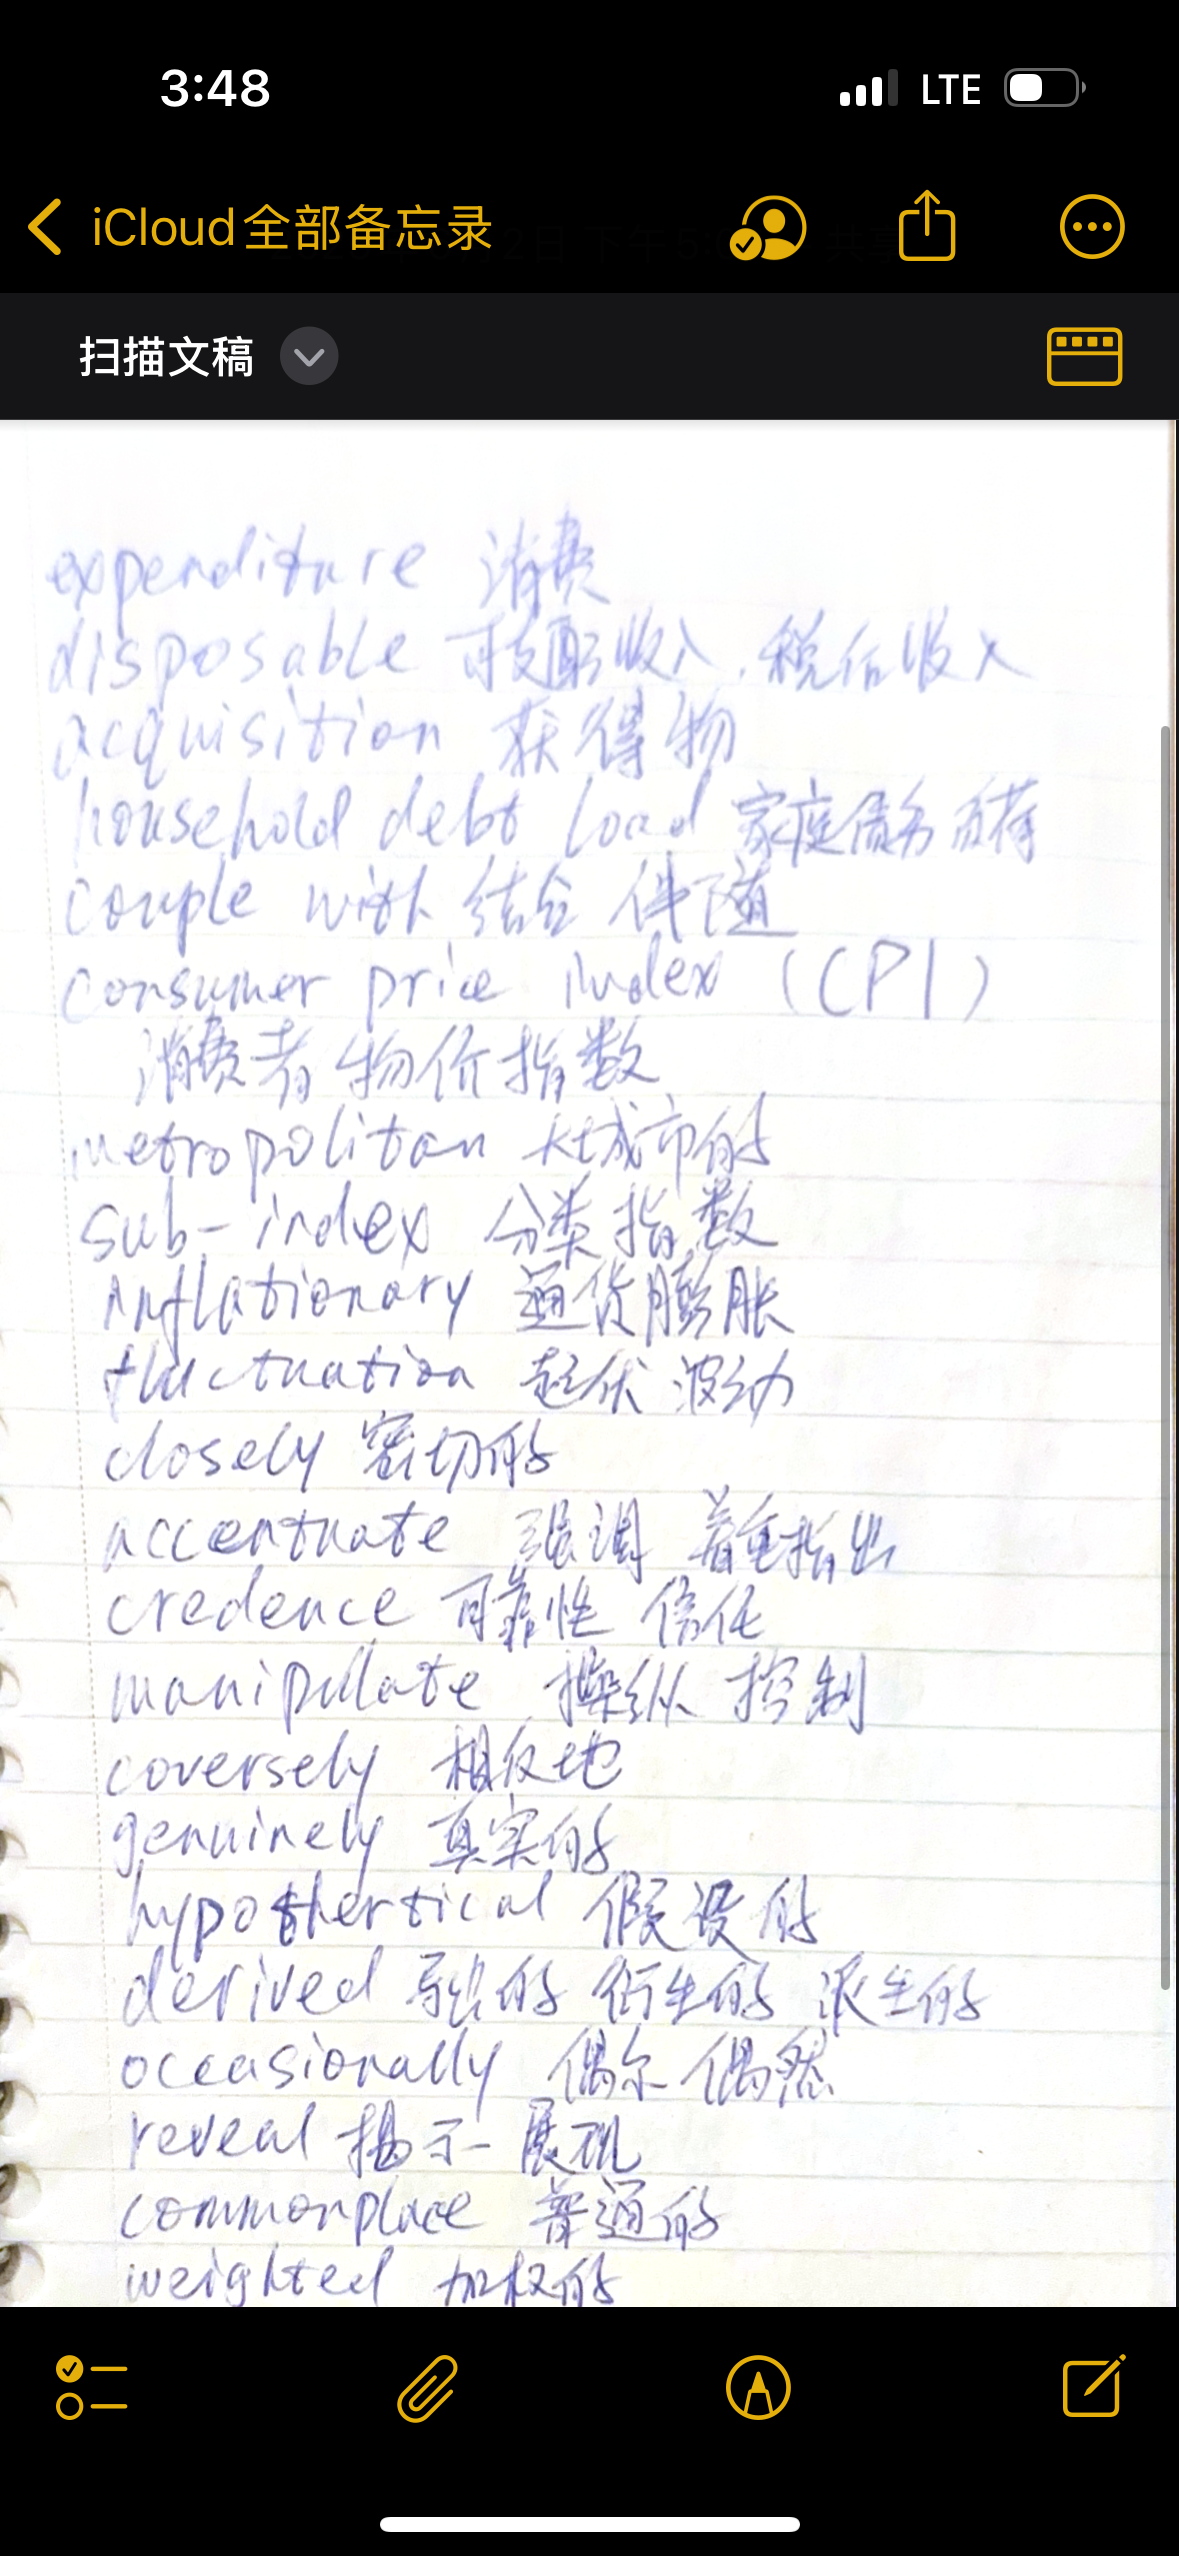 3:48 LTE
iCloud全部备忘录
扫描文稿
expenditure 消费
disposable 可支配收入.税后收入
acquisition 获得物
household debt load 家庭债务负荷
couple with 结合 伴随
consumer price index (CPI)
消费者物价指数
metropolitan 大城市的
sub-index 分类指数
inflationary 通货膨胀
fluctuation 起伏 波动
closely 密切的
accentuate 强调 着重指出
credence 可靠性 信任
manipulate 操纵 控制
coversely 相反地
genuinely 真实的
hypothertical 假设的
derived 导出的 衍生的 派生的
occasionally 偶尔 偶然
reveal 揭示 展现
commonplace 普通的
weighted 加权的